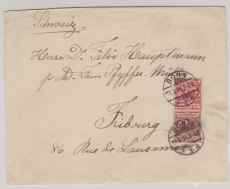 Schweiz
Herrn Dr. Felix Hauptmann
Pfyffer
Fribourg
86 Rue de Lausanne
BONN